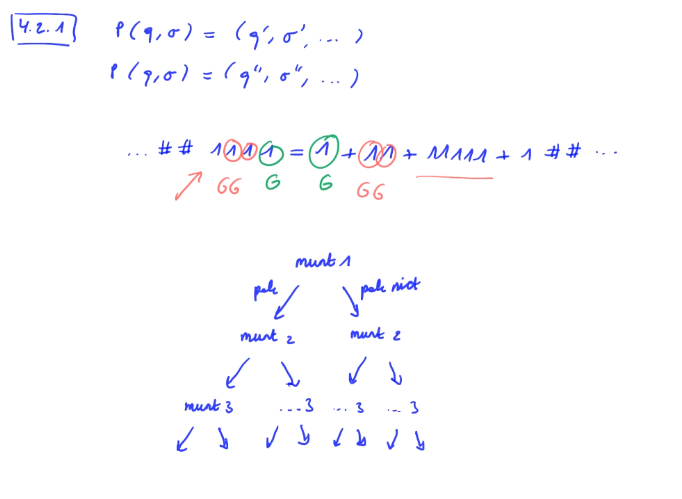 4.2.1 P(q,σ) = (q', σ', ...)
P(q,σ) = (q", σ", ...)
... # # 1111 = 1 + 11 + 11111 + 1 # # ...
GG G G GG
munt 1
pak pak niet
munt 2 munt 2
munt 3 ...3 ...3 ...3